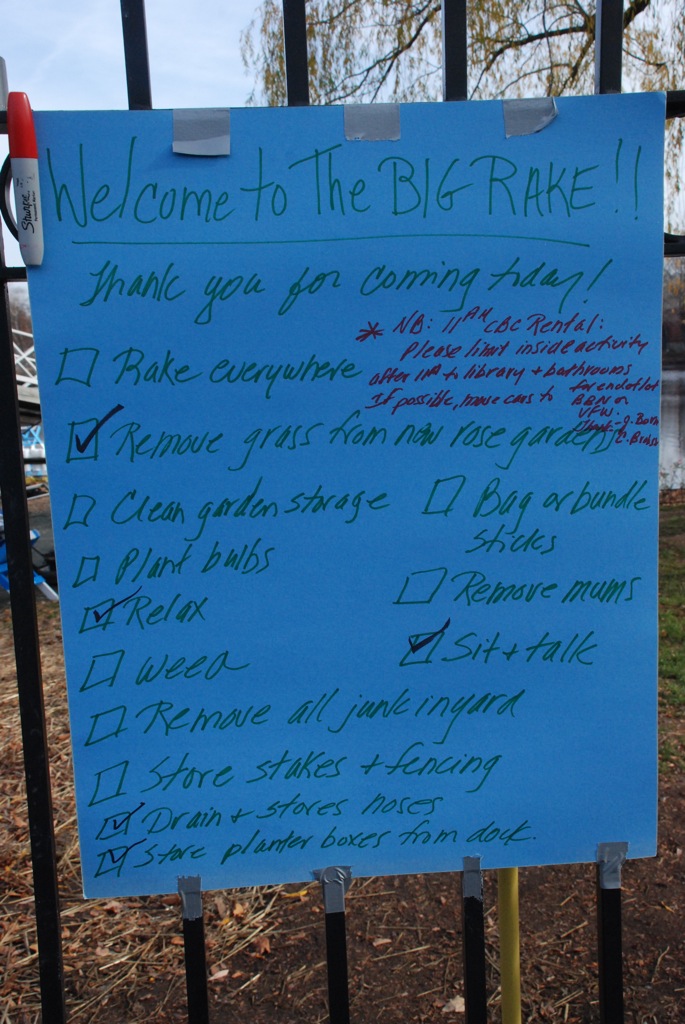 Welcome to The BIG RAKE!!
Thank you for coming today!
* NB: 11AM CBC Rental:
Please limit inside activity
after 11A to library + bathrooms
If possible, move cars to far end of lot
BBN or
VFW.
Rake everywhere
Remove grass from new rose garden
Clean garden storage
Bag or bundle
sticks
Plant bulbs
Remove mums
Relax
Sit + talk
Weed
Remove all junk in yard
Store stakes + fencing
Drain + stores hoses
Store planter boxes from dock.
Sharpie